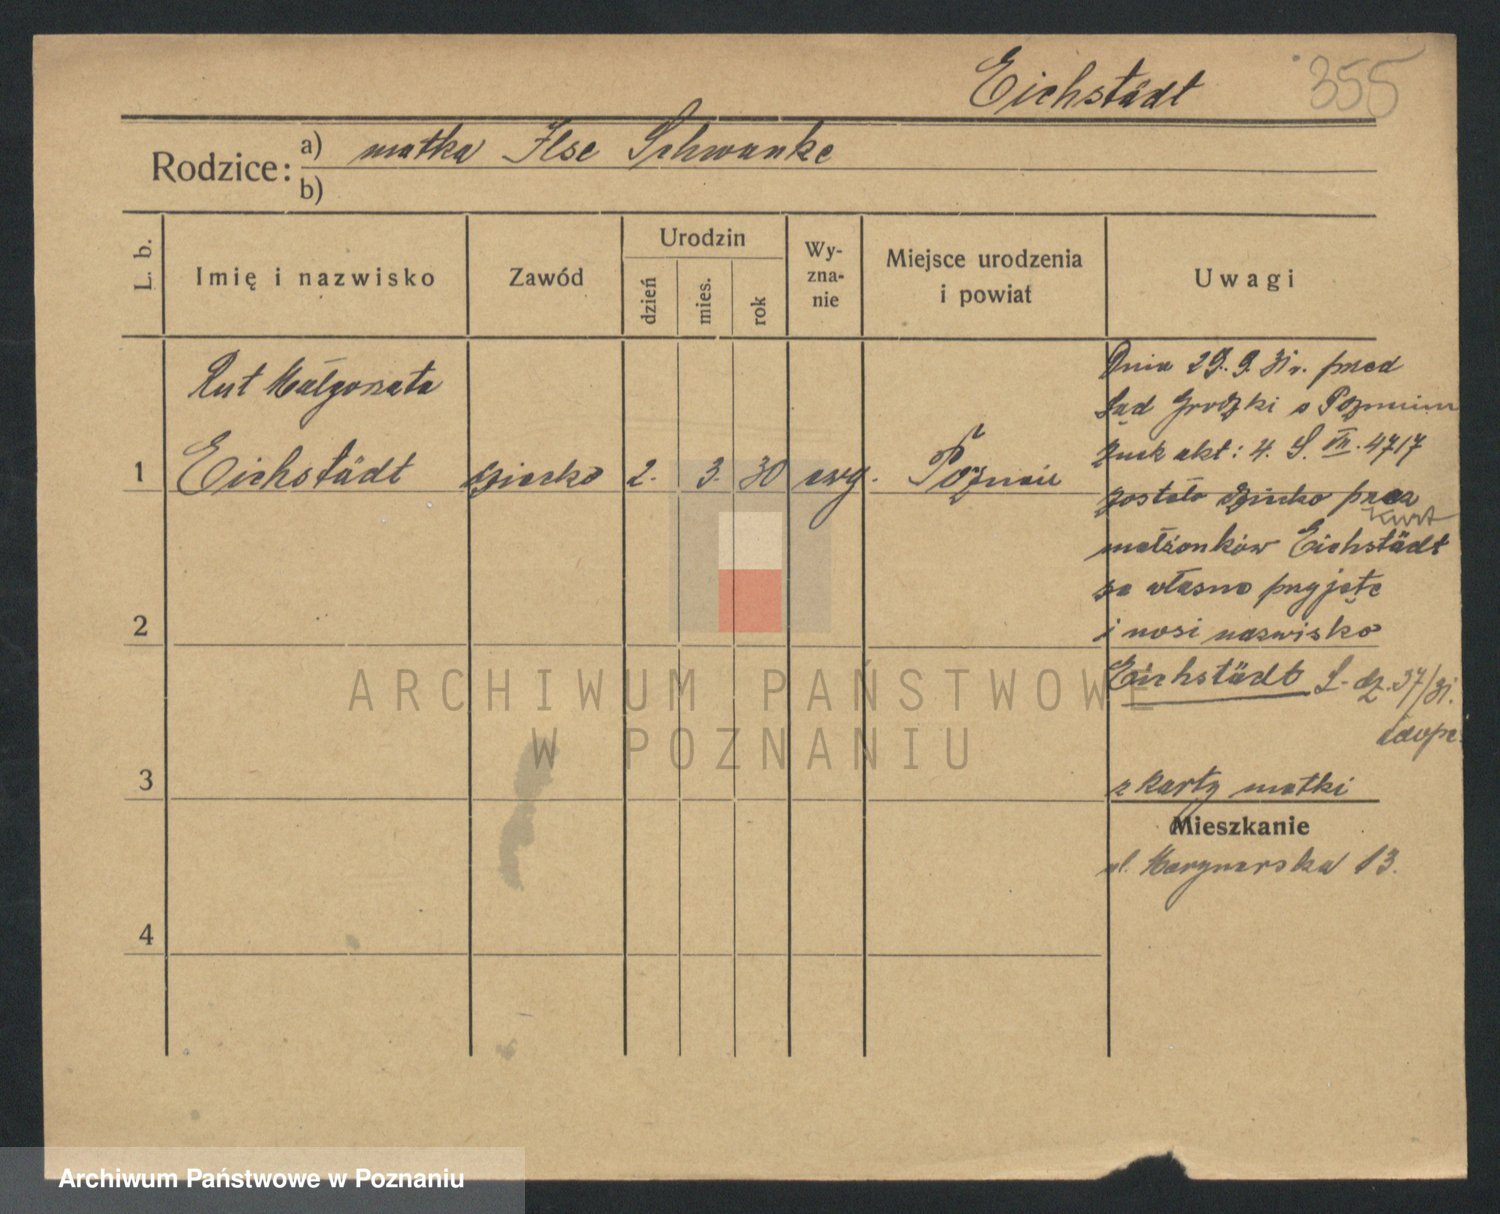 Eichstädt 355
Rodzice: a) matka Ilse Schwanke
b)
L. b.
Imię i nazwisko
Zawód
Urodzin
dzień
mies.
rok
Wy-
zna-
nie
Miejsce urodzenia
i powiat
Uwagi
Rut Małgorzata
1 Eichstädt dziecko 2. 3. 30 ewg. Poznań
2
3
4
Dnia 29. 9. 31 r. przed
Sąd Grodzki w Poznaniu
znak akt: 4. S. VII. 4717
zostało dziecko przez
Kurt
małżonków Eichstädt
za własne przyjęte
i nosi nazwisko
Eichstädt L. dz. 37/31.
adopc.
z karty matki
Mieszkanie
ul. Marynarska 13.
ARCHIWUM PAŃSTWOWE
W POZNANIU
Archiwum Państwowe w Poznaniu